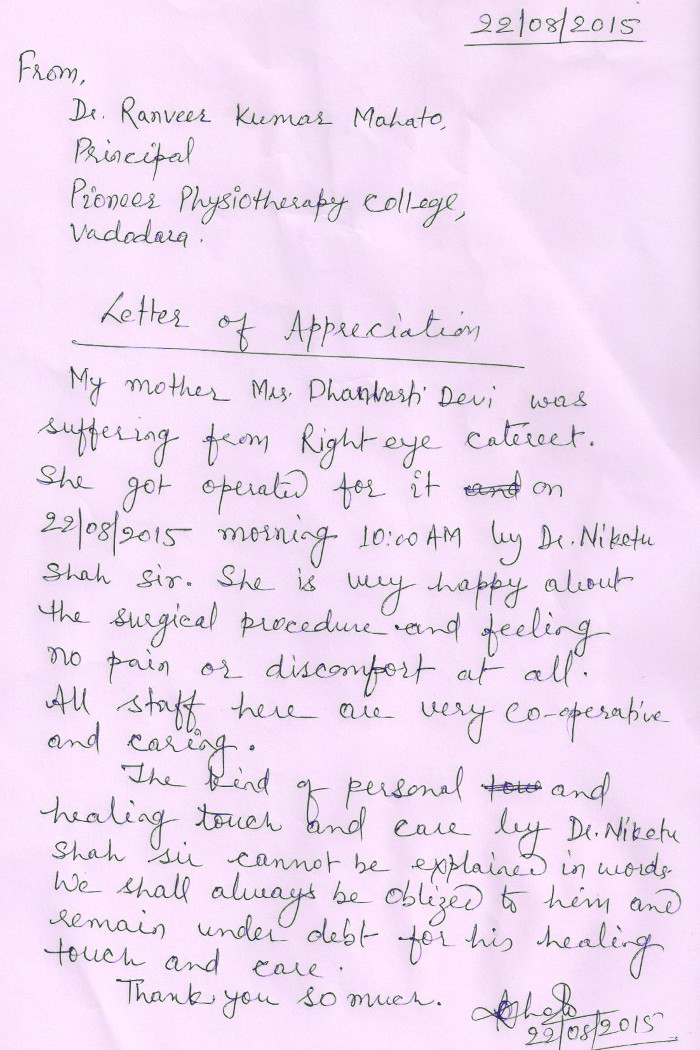 22/08/2015
From,
Dr. Ranveer Kumar Mahato,
Principal
Pioneer Physiotherapy College,
Vadodara.
Letter of Appreciation
My mother Mrs. Dhanbarti Devi was
suffering from Right eye caterect.
She got operated for it and on
22/08/2015 morning 10:00 AM by Dr. Niketu
Shah Sir. She is very happy about
the surgical procedure and feeling
no pain or discomfort at all.
All staff here are very co-operative
and caring.
The kind of personal and
healing touch and care by Dr. Niketu
Shah sir cannot be explained in words.
We shall always be oblized to him and
remain under debt for his healing
touch and care.
Thank you so much.
22/08/2015